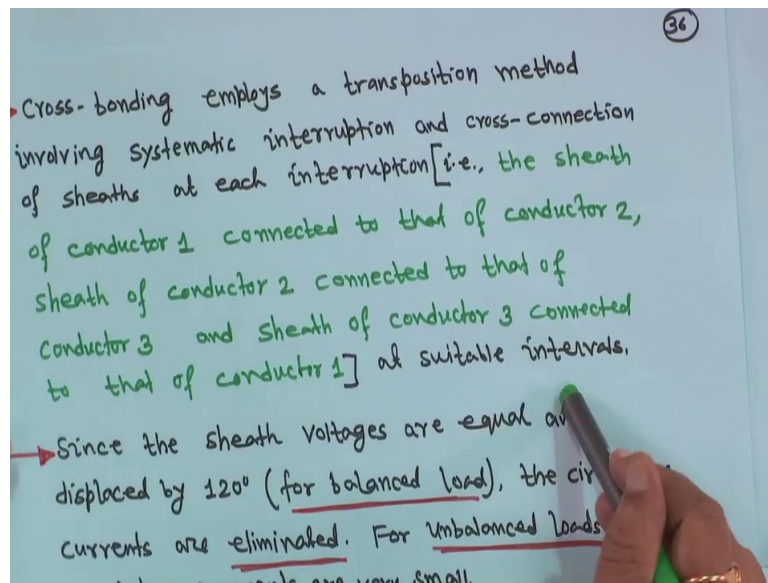 36
Cross-bonding employs a transposition method
involving systematic interruption and cross-connection
of sheaths at each interruption [i.e., the sheath
of conductor 1 connected to that of conductor 2,
sheath of conductor 2 connected to that of
conductor 3 and sheath of conductor 3 connected
to that of conductor 1] at suitable intervals.
Since the sheath voltages are equal
displaced by 120° (for balanced load), the
currents are eliminated. For unbalanced loads
are very small